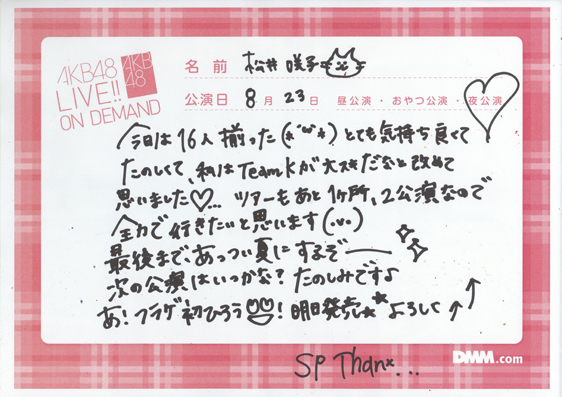 AKB48
LIVE!!
ON DEMAND
AKB
48
名前 松井 咲子
公演日 8月 23日 昼公演・おやつ公演・夜公演
今日は16人揃った(*´ω`*)とても気持ち良くて
たのしくて、私はTeamKが大スキだなと改めて
思いました♡... ツアーもあと1ヶ所、2公演なので
全力で行きたいと思います(.v.)
最後まで、あっつい夏にするぞー
次の公演はいつかな?たのしみですよ
あ!フラゲ初ひろう!明日発売★★よろしく↑↑
SP Thanx...
DMM.com